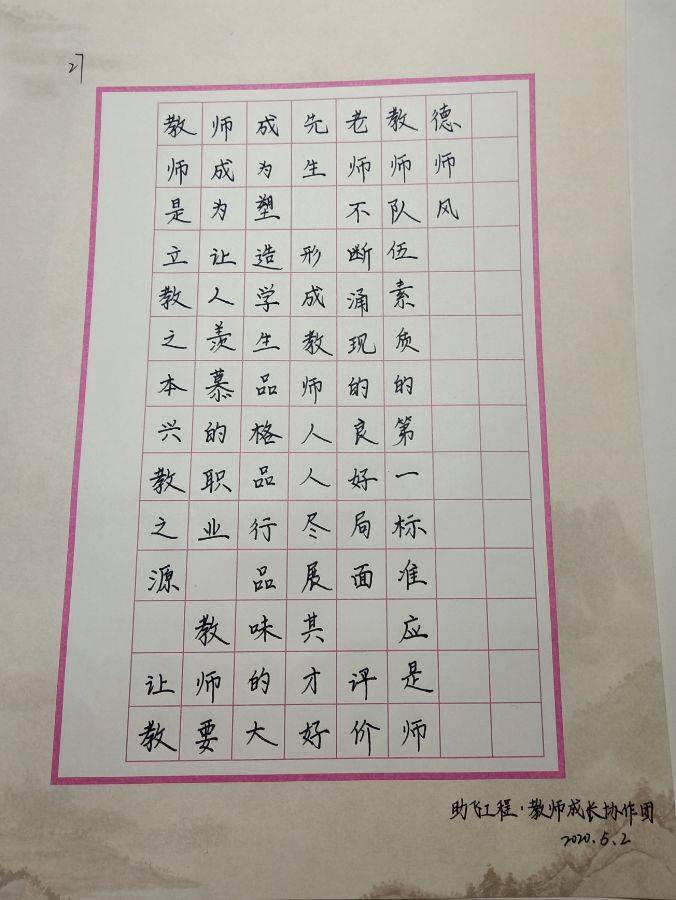 27
教师是立教之本兴教之源 让教
师成为让人羡慕的职业 教师要
成为塑造学生品格品行品味的大
先生 形成教师人人尽展其才好
老师不断涌现的良好局面 评价
教师队伍素质的第一标准应是师
德师风
助飞工程·教师成长协作团
2020.5.2